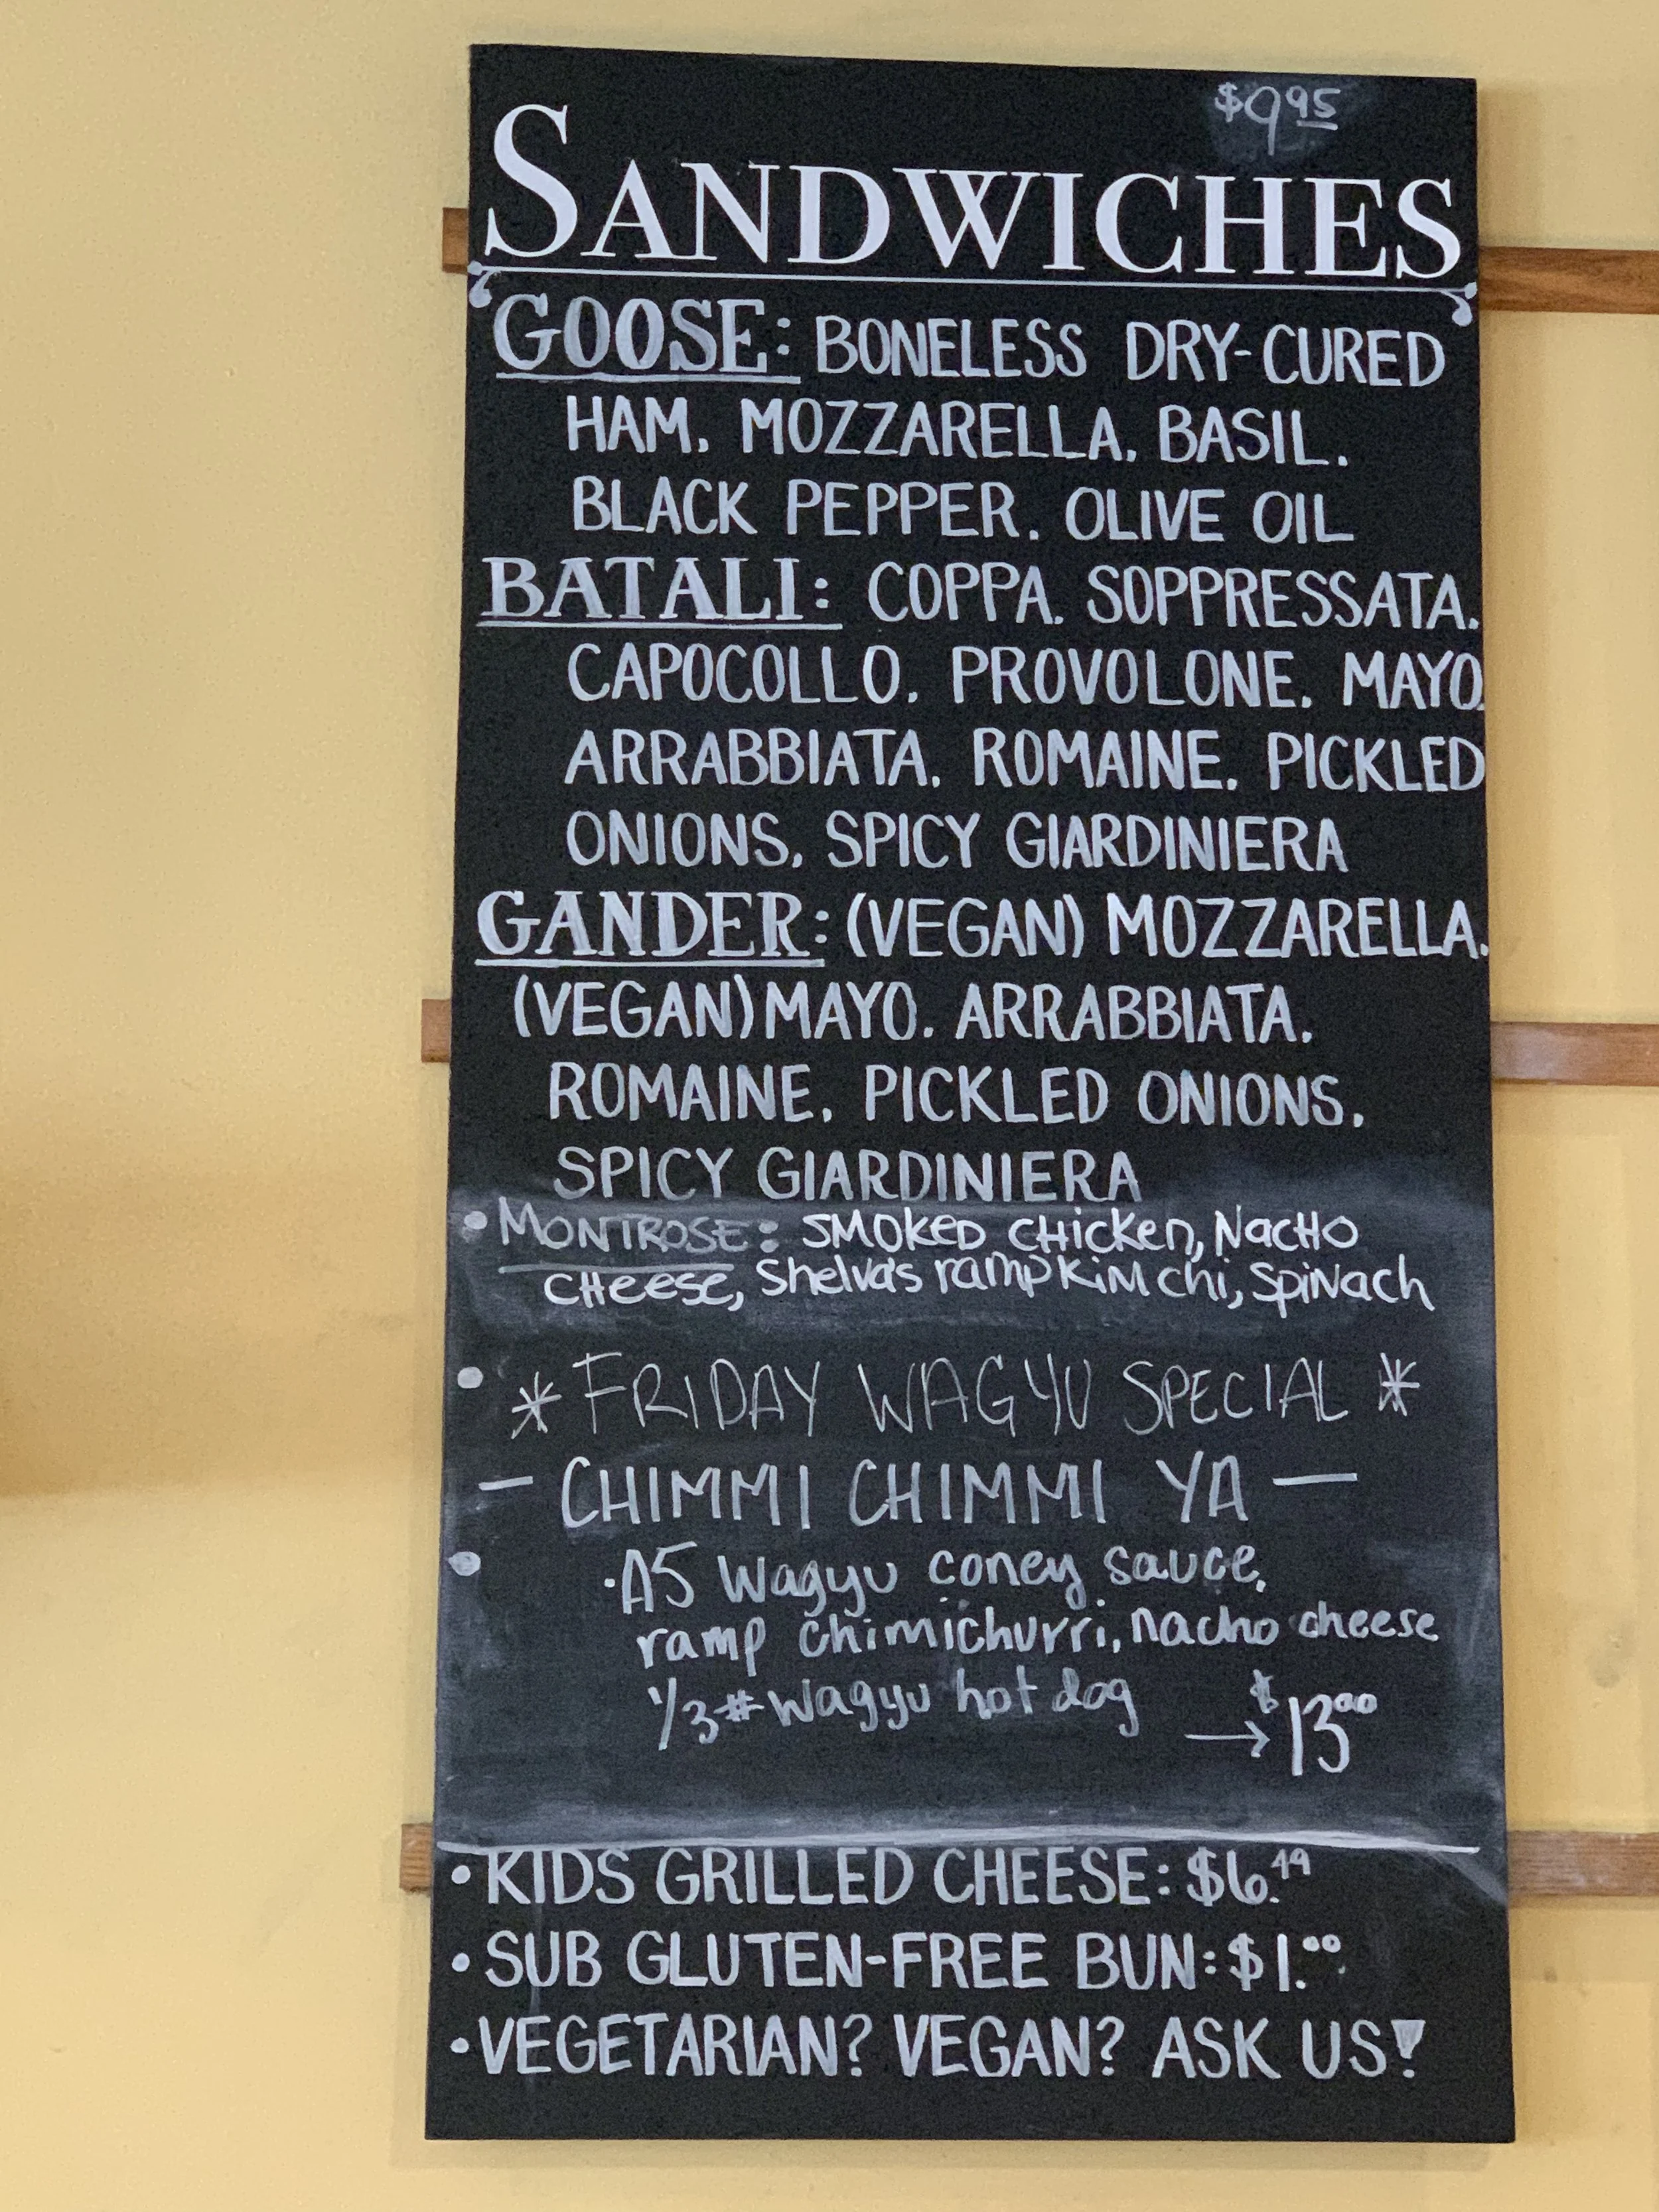 $9.95
SANDWICHES
GOOSE: BONELESS DRY-CURED
HAM, MOZZARELLA, BASIL,
BLACK PEPPER, OLIVE OIL
BATALI: COPPA, SOPPRESSATA,
CAPOCOLLO, PROVOLONE, MAYO,
ARRABBIATA, ROMAINE, PICKLED
ONIONS, SPICY GIARDINIERA
GANDER: (VEGAN) MOZZARELLA,
(VEGAN) MAYO, ARRABBIATA,
ROMAINE, PICKLED ONIONS,
SPICY GIARDINIERA
• MONTROSE: SMOKED CHICKEN, NACHO
CHEESE, Shelva's ramp KiMchi, SpiNach
* FRIDAY WAGYU SPECIAL *
— CHIMMI CHIMMI YA —
• A5 Wagyu coney sauce,
ramp chimichurri, nacho cheese
1/3# Wagyu hot dog → $13.00
• KIDS GRILLED CHEESE: $6.49
• SUB GLUTEN-FREE BUN: $1.00
• VEGETARIAN? VEGAN? ASK US!